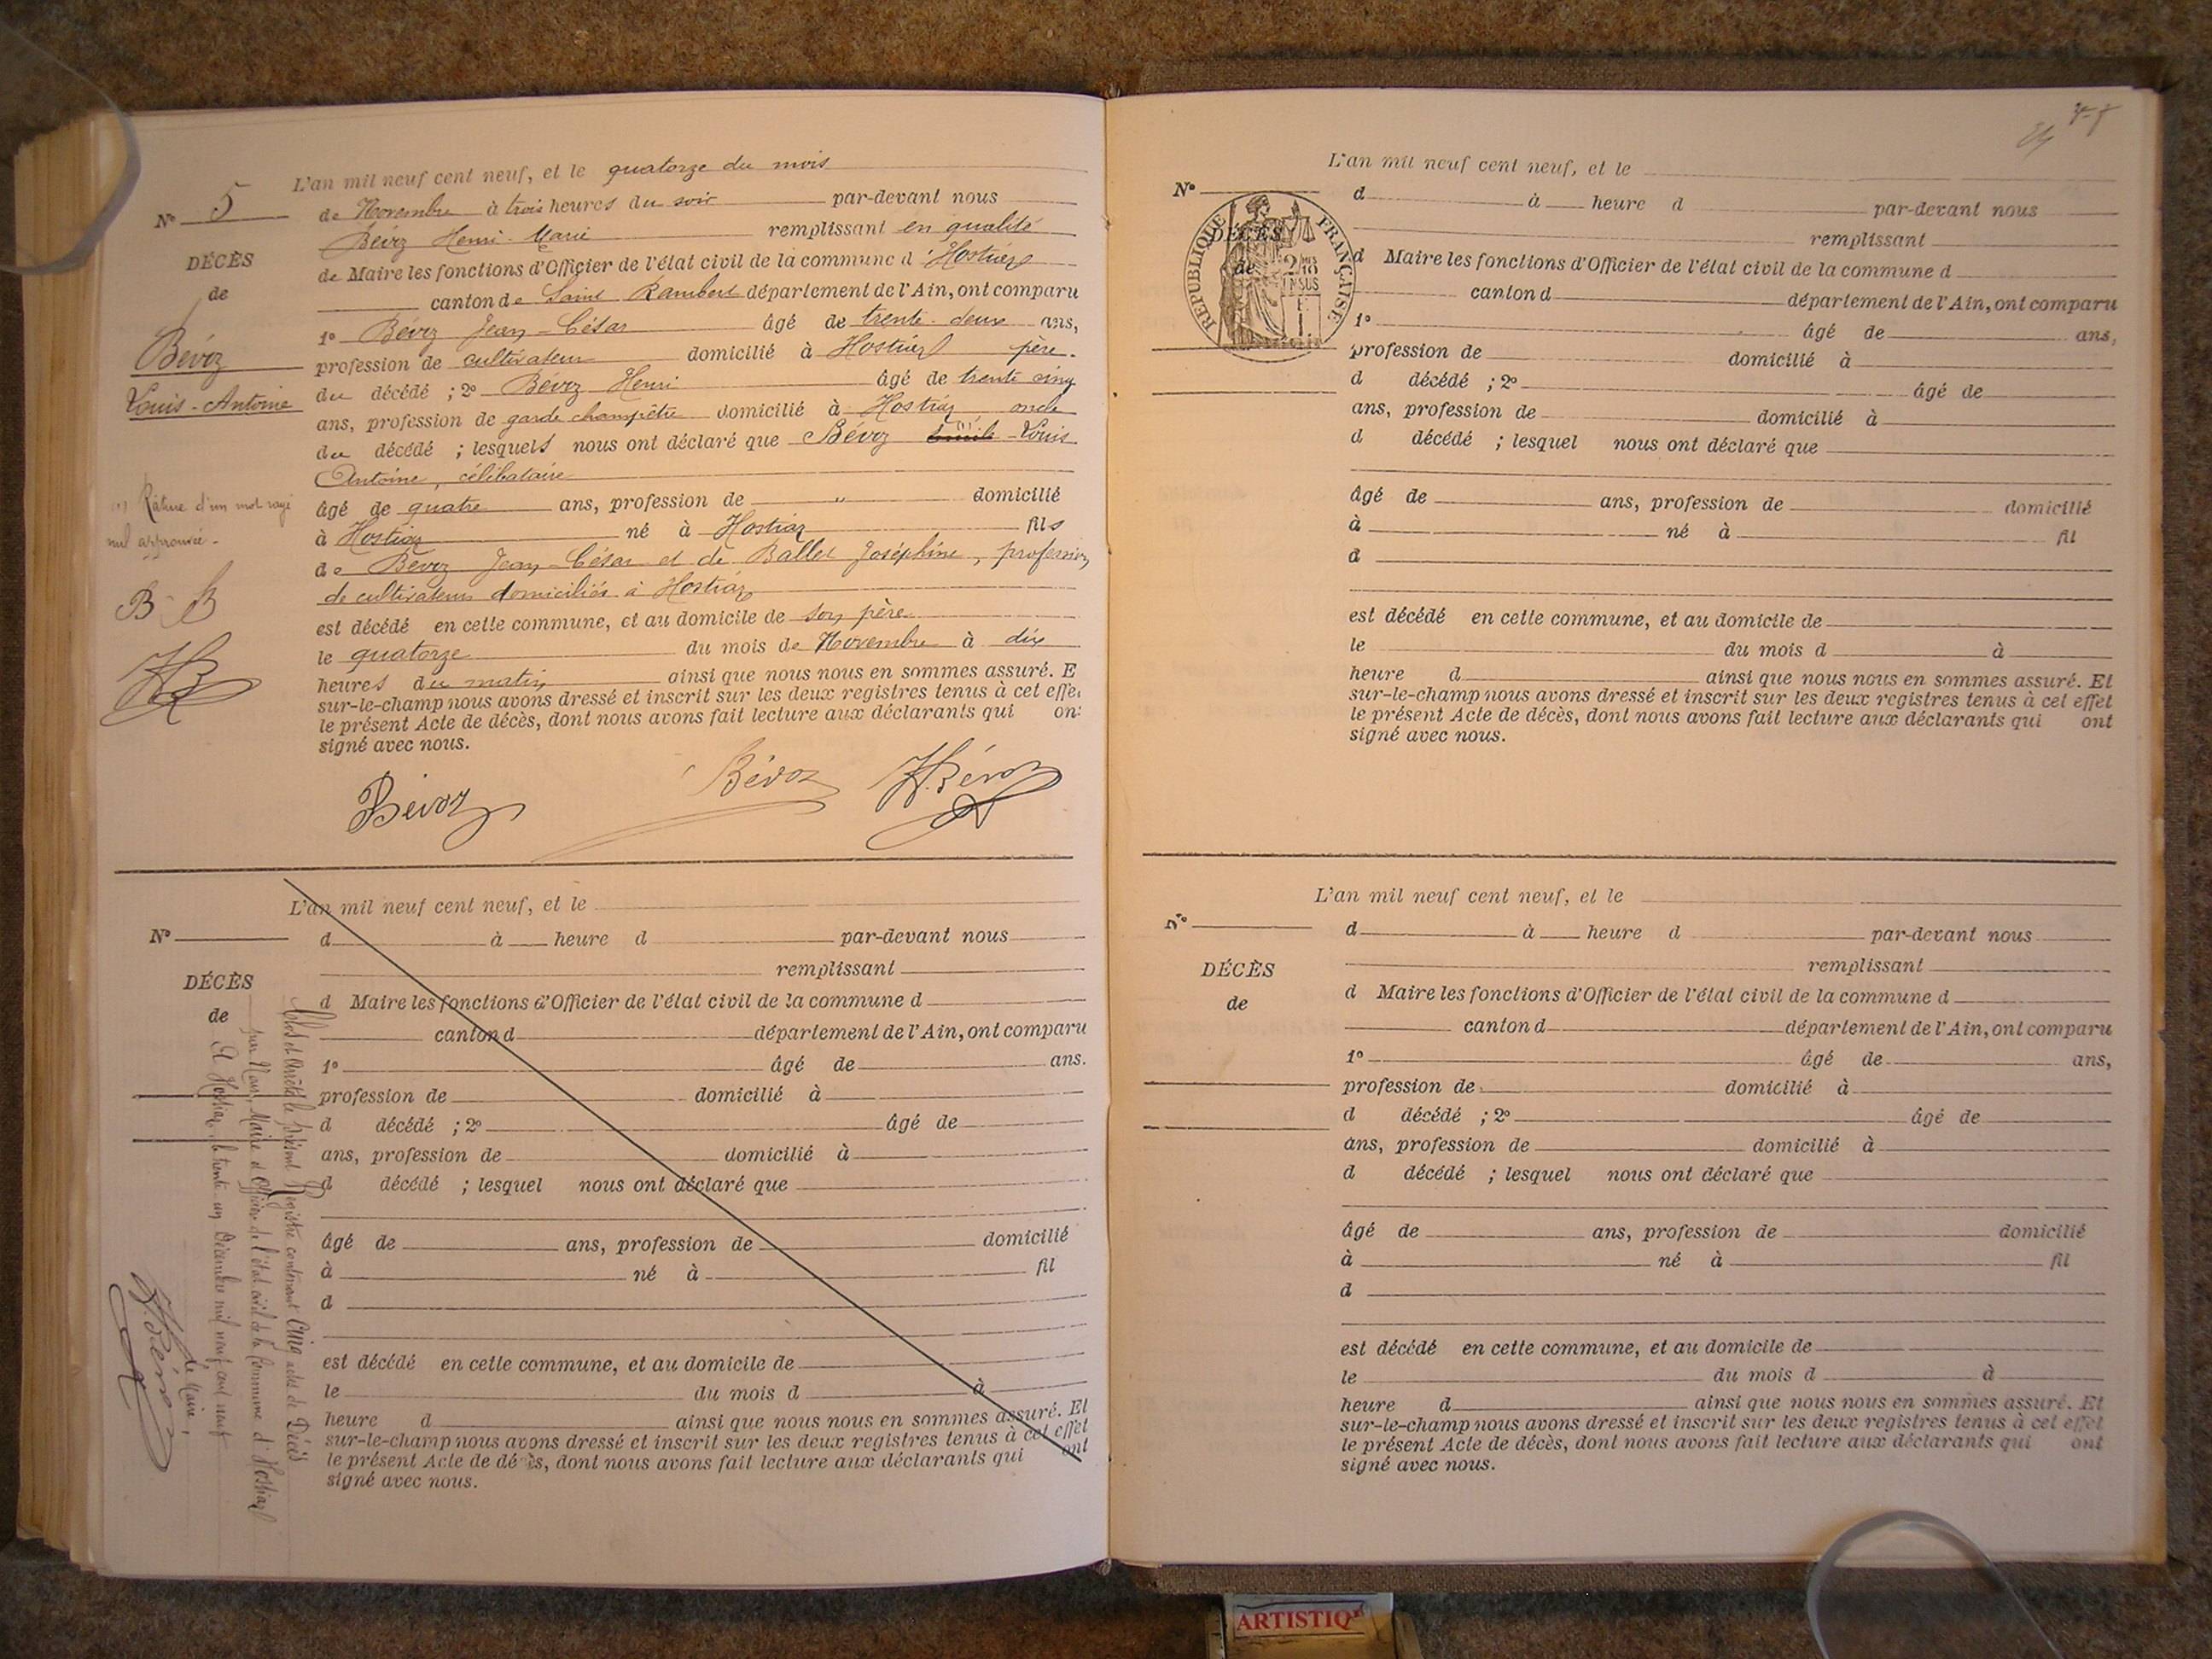 N° 5
DÉCÈS
de
Bévoz
Louis-Antoine
(1) Râture d'un mot rayé
nul approuvée.
B B
HB
L'an mil neuf cent neuf, et le quatorze du mois
de Novembre à trois heures du soir par-devant nous
Bévoz Henri-Marie remplissant en qualité
de Maire les fonctions d'Officier de l'état civil de la commune d'Hostiaz
canton de Saint Rambert département de l'Ain, ont comparu
1° Bévoz Jean-César âgé de trente-deux ans,
profession de cultivateur domicilié à Hostiaz père
du décédé ; 2° Bévoz Henri âgé de trente cinq
ans, profession de garde champêtre domicilié à Hostiaz, oncle
du décédé ; lesquels nous ont déclaré que Bévoz (1) Louis
Antoine, célibataire
âgé de quatre ans, profession de " domicilié
à Hostiaz né à Hostiaz fils
de Bévoz Jean-César et de Ballet Joséphine, profession
de cultivateurs domiciliés à Hostiaz
est décédé en cette commune, et au domicile de son père
le quatorze du mois de Novembre à dix
heures du matin ainsi que nous nous en sommes assuré. E
sur-le-champ nous avons dressé et inscrit sur les deux registres tenus à cet effe
le présent Acte de décès, dont nous avons fait lecture aux déclarants qui on
signé avec nous.
Bévoz Bévoz H. Bévoz
N°
DÉCÈS
de
L'an mil neuf cent neuf, et le
d à heure d par-devant nous
remplissant
d Maire les fonctions d'Officier de l'état civil de la commune d
canton d département de l'Ain, ont comparu
1° âgé de ans.
profession de domicilié à
d décédé ; 2° âgé de
ans, profession de domicilié à
d décédé ; lesquel nous ont déclaré que
âgé de ans, profession de domicilié
à né à fil
d
est décédé en cette commune, et au domicile de
le du mois d à
heure d ainsi que nous nous en sommes assuré. Et
sur-le-champ nous avons dressé et inscrit sur les deux registres tenus à cet effet
le présent Acte de décès, dont nous avons fait lecture aux déclarants qui ont
signé avec nous.
Clos et arrêté le présent Registre contenant Cinq actes de Décès
par Nous, Maire et Officier de l'état civil de la Commune d'Hostiaz
A Hostiaz, le trente-un Décembre mil neuf cent neuf
Le Maire,
H. Bévoz
N°
REPUBLIQUE FRANÇAISE
DÉCÈS
de
L'an mil neuf cent neuf, et le
d à heure d par-devant nous
remplissant
d Maire les fonctions d'Officier de l'état civil de la commune d
canton d département de l'Ain, ont comparu
1° âgé de ans,
profession de domicilié à
d décédé ; 2° âgé de
ans, profession de domicilié à
d décédé ; lesquel nous ont déclaré que
âgé de ans, profession de domicilié
à né à fil
d
est décédé en cette commune, et au domicile de
le du mois d à
heure d ainsi que nous nous en sommes assuré. Et
sur-le-champ nous avons dressé et inscrit sur les deux registres tenus à cet effet
le présent Acte de décès, dont nous avons fait lecture aux déclarants qui ont
signé avec nous.
N°
DÉCÈS
de
L'an mil neuf cent neuf, et le
d à heure d par-devant nous
remplissant
d Maire les fonctions d'Officier de l'état civil de la commune d
canton d département de l'Ain, ont comparu
1° âgé de ans,
profession de domicilié à
d décédé ; 2° âgé de
ans, profession de domicilié à
d décédé ; lesquel nous ont déclaré que
âgé de ans, profession de domicilié
à né à fil
d
est décédé en cette commune, et au domicile de
le du mois d à
heure d ainsi que nous nous en sommes assuré. Et
sur-le-champ nous avons dressé et inscrit sur les deux registres tenus à cet effet
le présent Acte de décès, dont nous avons fait lecture aux déclarants qui ont
signé avec nous.
ARTISTIQ